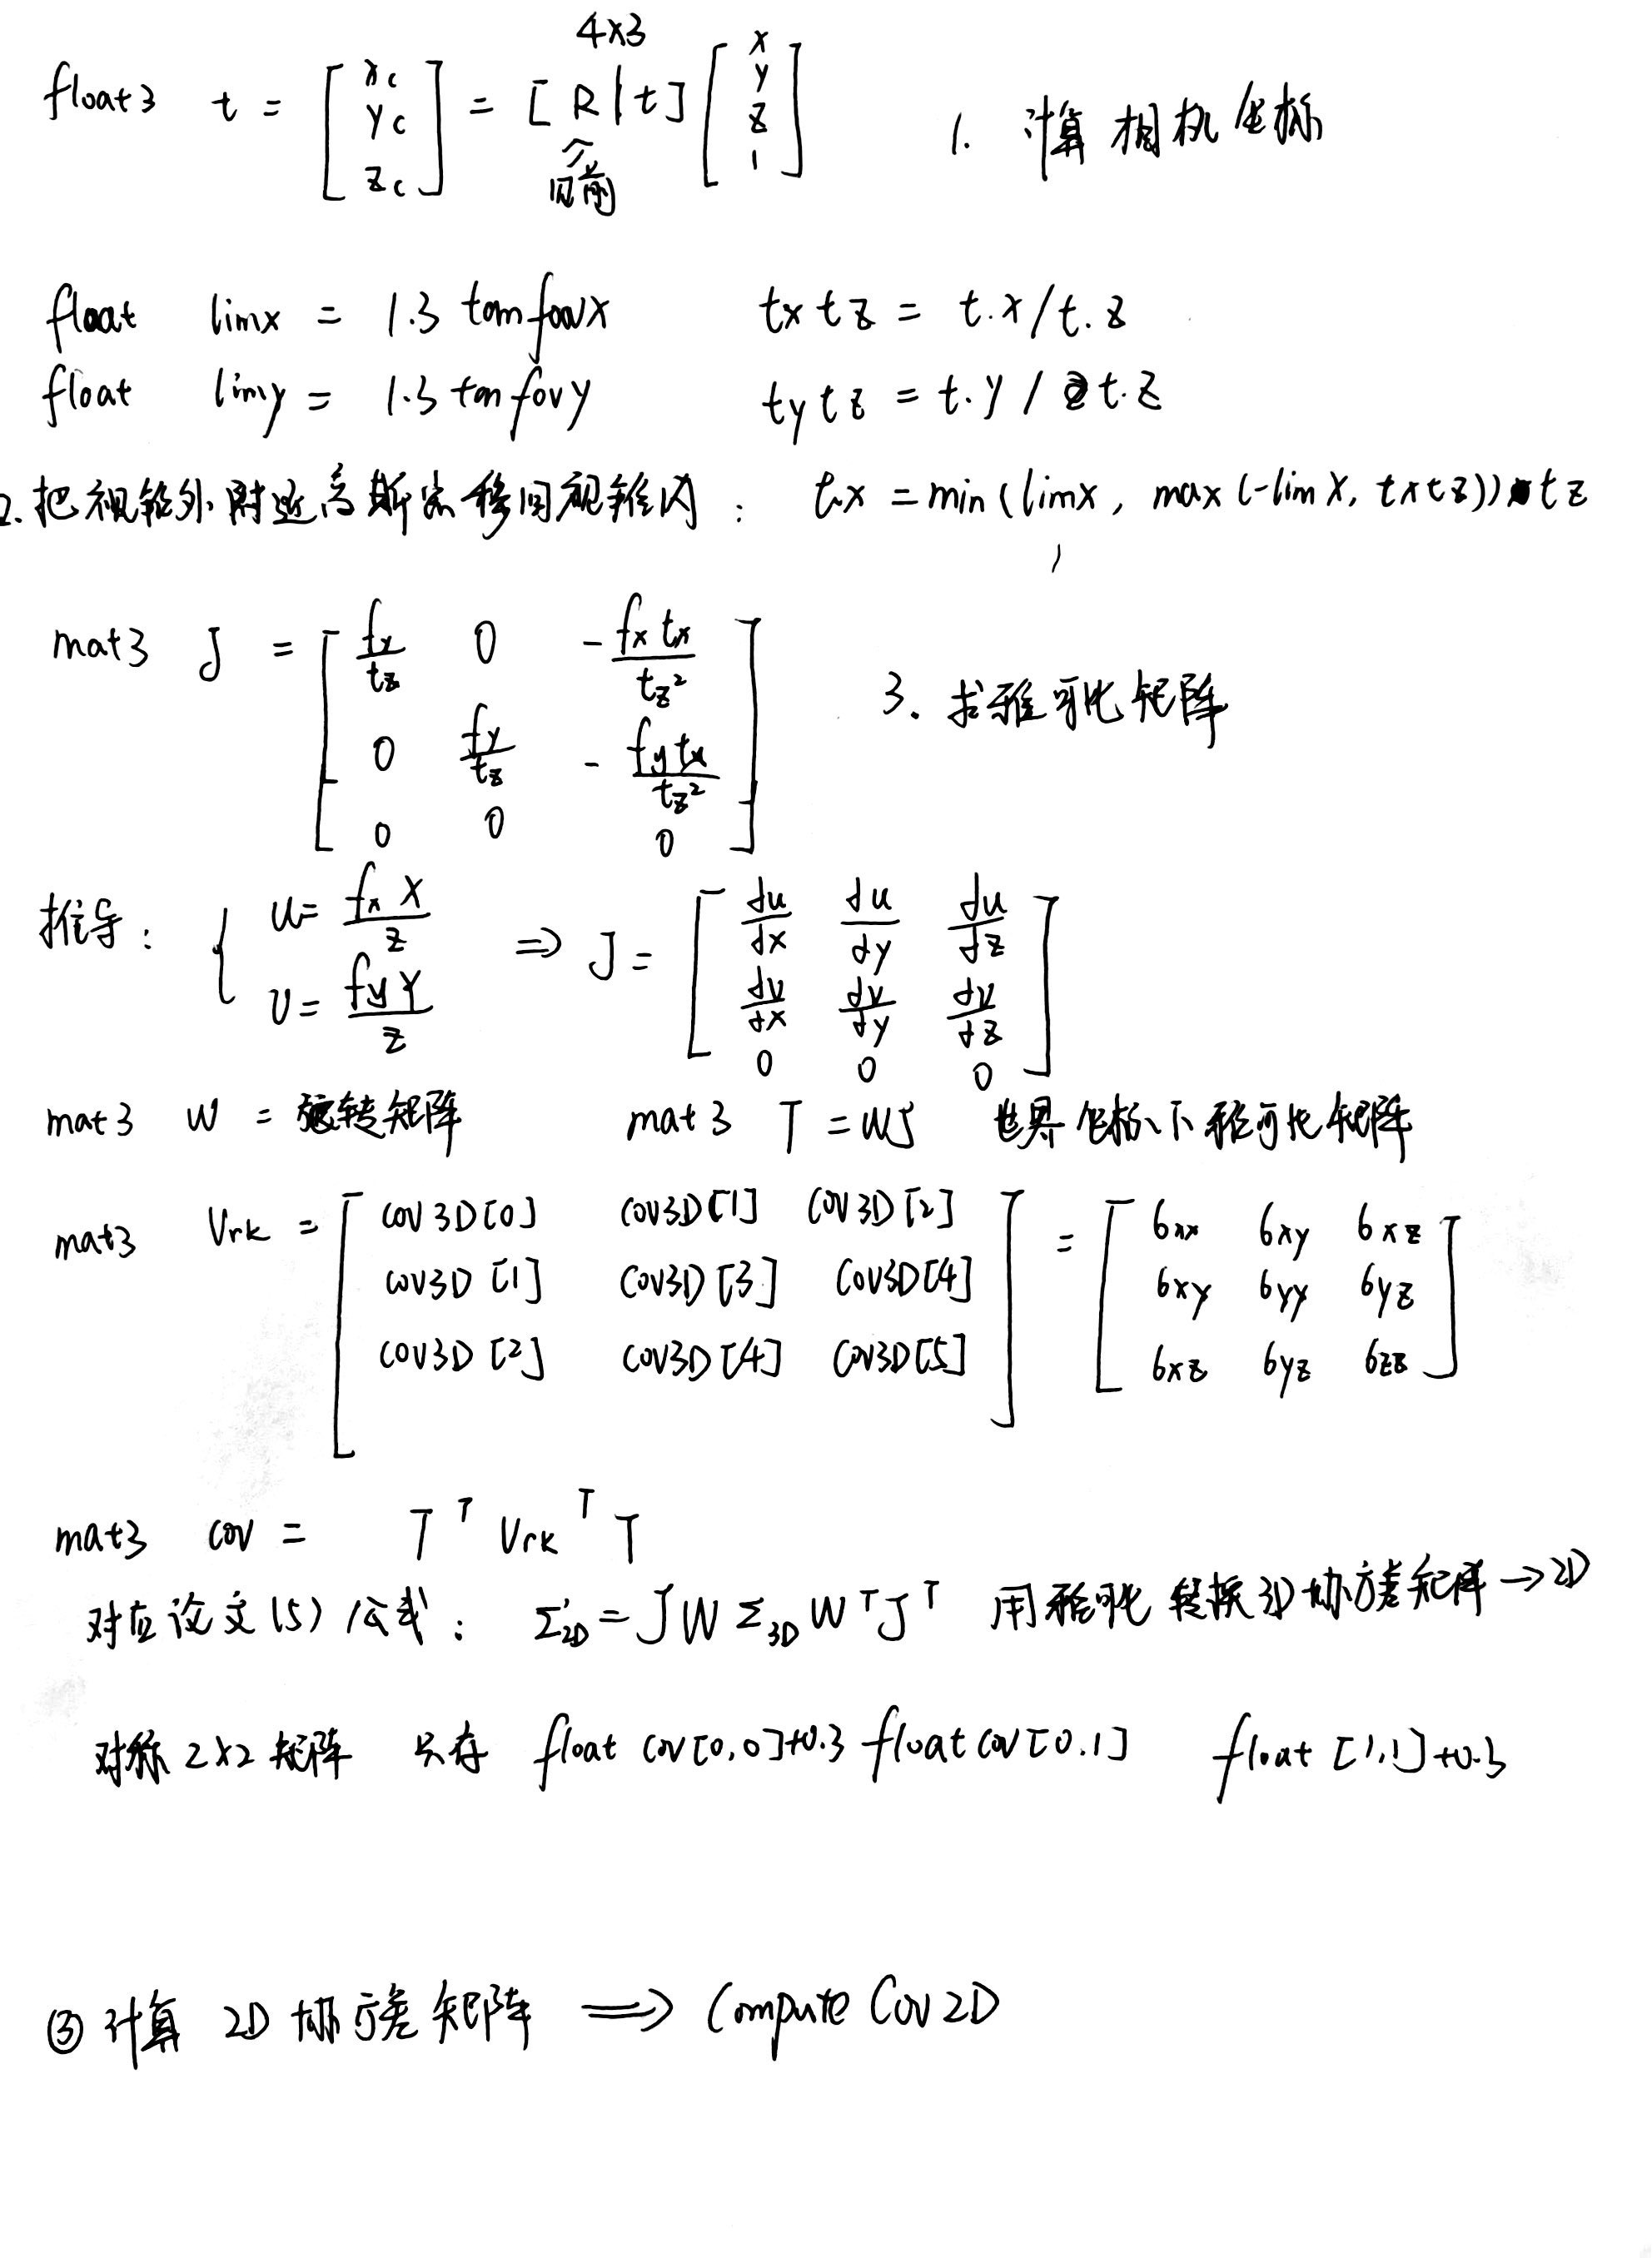 4×3
float3 t = [ xc yc zc ] = [ R | t ] [ x y z 1 ] 1. 计算相机坐标
float limx = 1.3 tanfovx txtz = t.x/t.z
float limy = 1.3 tanfovy tytz = t.y / t.z
2. 把视锥外附近高斯点移回视锥内： t.x = min(limx, max(-limx, txtz)) * tz
mat3 J = [ fx/tz 0 -fx tx/tz²
0 fy/tz -fy tx/tz²
0 0 0 ] 3. 求雅可比矩阵
推导： { u = fx X/z ⇒ J = [ du/dx du/dy du/dz
v = fy Y/z dv/dx dv/dy dv/dz
0 0 0 ]
mat3 W = 旋转矩阵 mat3 T = WJ 世界坐标下雅可比矩阵
mat3 Vrk = [ cov3D[0] cov3D[1] cov3D[2] = [ 6xx 6xy 6xz
cov3D[1] cov3D[3] cov3D[4] 6xy 6yy 6yz
cov3D[2] cov3D[4] cov3D[5] ] 6xz 6yz 6zz ]
mat3 cov = T^T Vrk^T T
对应论文(5)公式： Σ'2D = J W Σ3D W^T J^T 用雅可比 转换3D协方差矩阵→2D
对称 2×2 矩阵 只存 float cov[0,0]+0.3 float cov[0.1] float [1,1]+0.3
③ 计算 2D 协方差矩阵 ⟹ Compute Cov2D